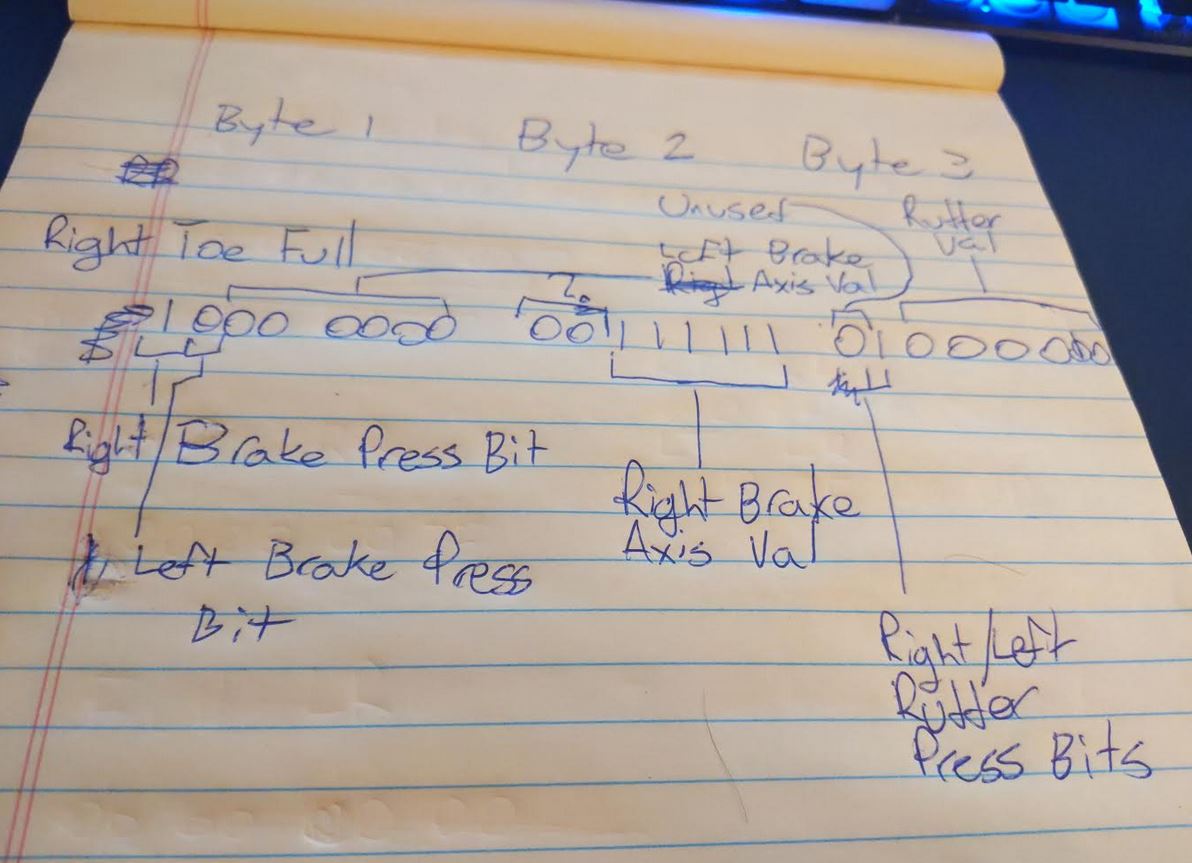 Byte 1 Byte 2 Byte 3
Unused Rutter
Val
Right Toe Full Left Brake
Axis Val
1000 0000 001111111 01000000
Right Brake Press Bit
Right Brake
Axis Val
Left Brake Press
Bit
Right/Left
Rudder
Press Bits